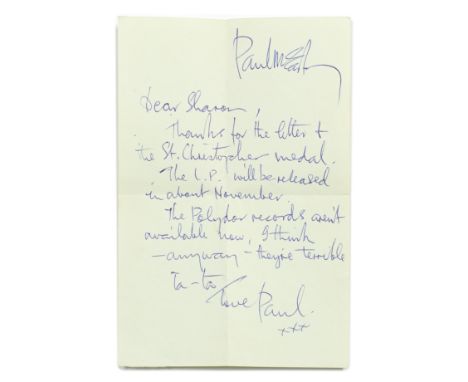 Paul McCartney
Dear Sharon,
Thanks for the letter &
the St. Christopher medal.
The L.P. will be released
in about November.
The Polydor records aren't
available now, I think
- anyway - they're terrible
Ta-too
love Paul.
xxx